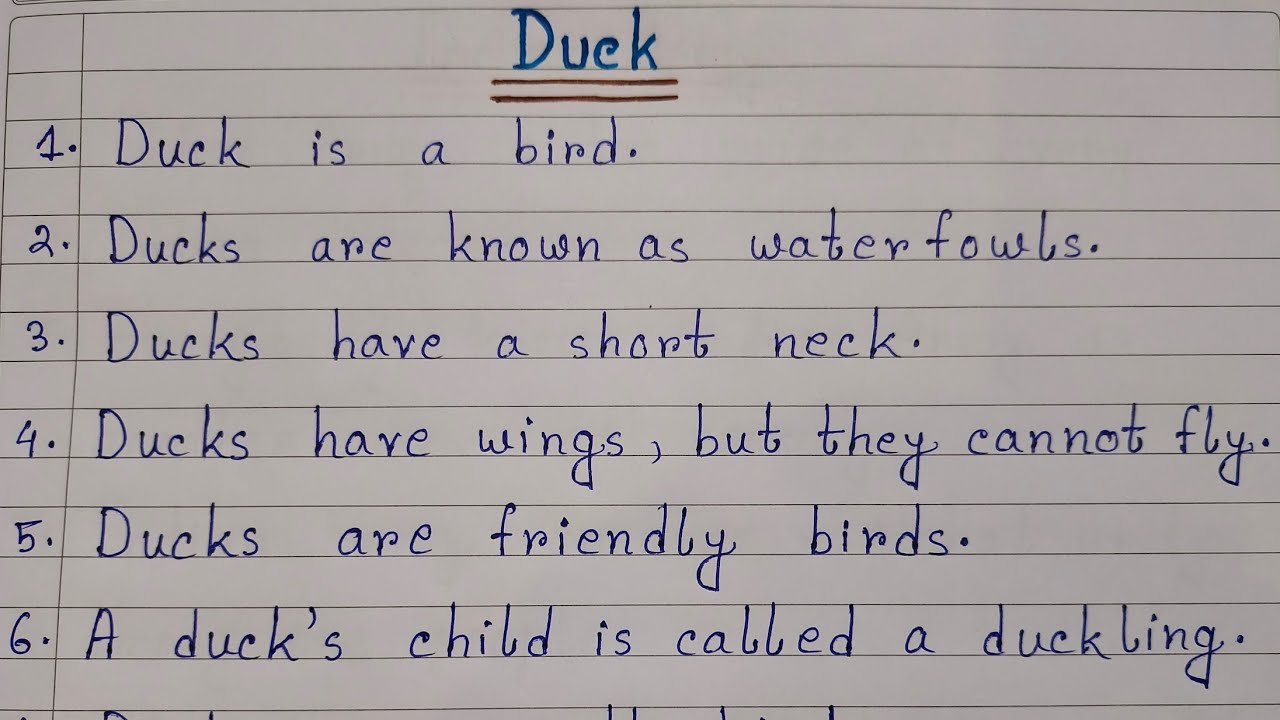 Duck
1. Duck is a bird.
2. Ducks are known as waterfowls.
3. Ducks have a short neck.
4. Ducks have wings, but they cannot fly.
5. Ducks are friendly birds.
6. A duck's child is called a duckling.